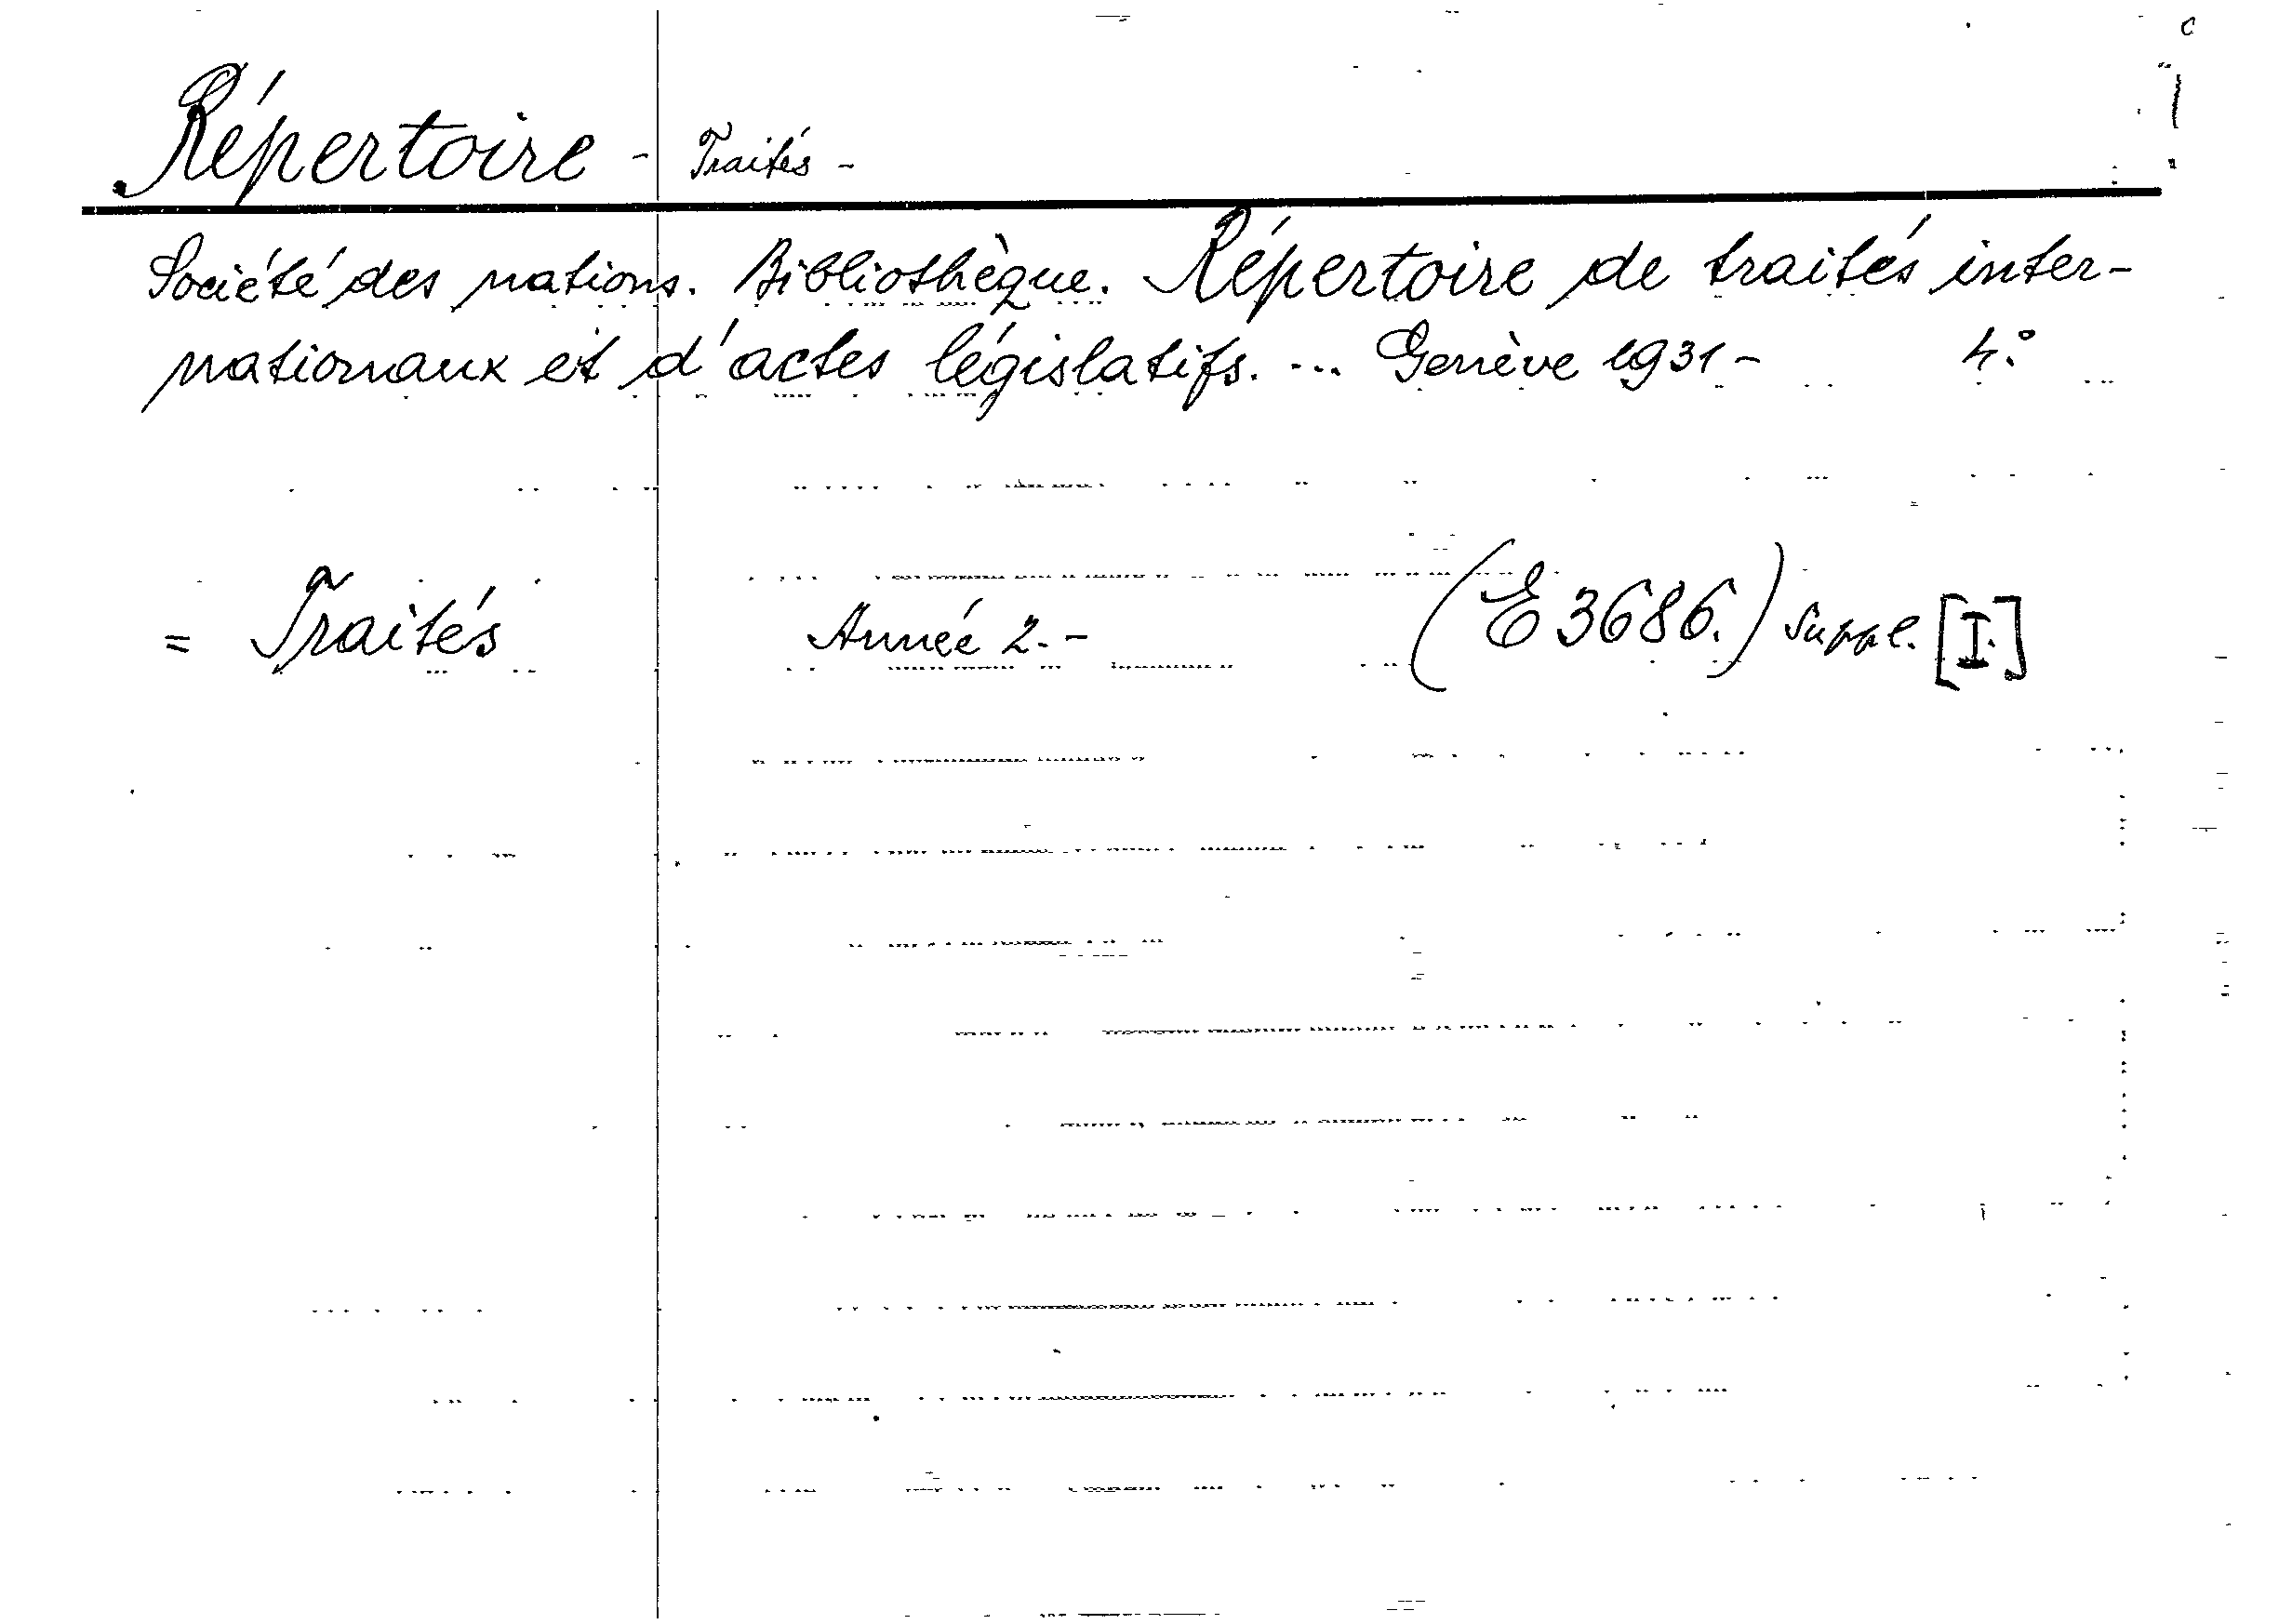 Répertoire - Traités -
Société des nations. Bibliothèque. Répertoire de traités inter-
nationaux et d'actes législatifs. ... Genève 1931- 4:o
= Traités Année 2.- (E 3686.) Suppl. [I.]